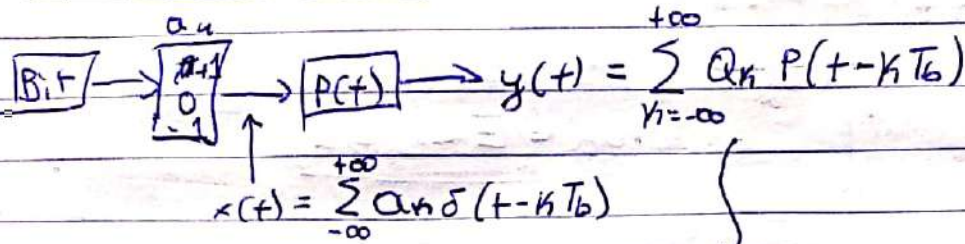 a_k
Bit → +1 0 -1 → P(t) → y(t) = \sum_{k=-∞}^{+∞} a_k P(t-kT_b)
x(t) = \sum_{-∞}^{+∞} a_k δ(t-kT_b)